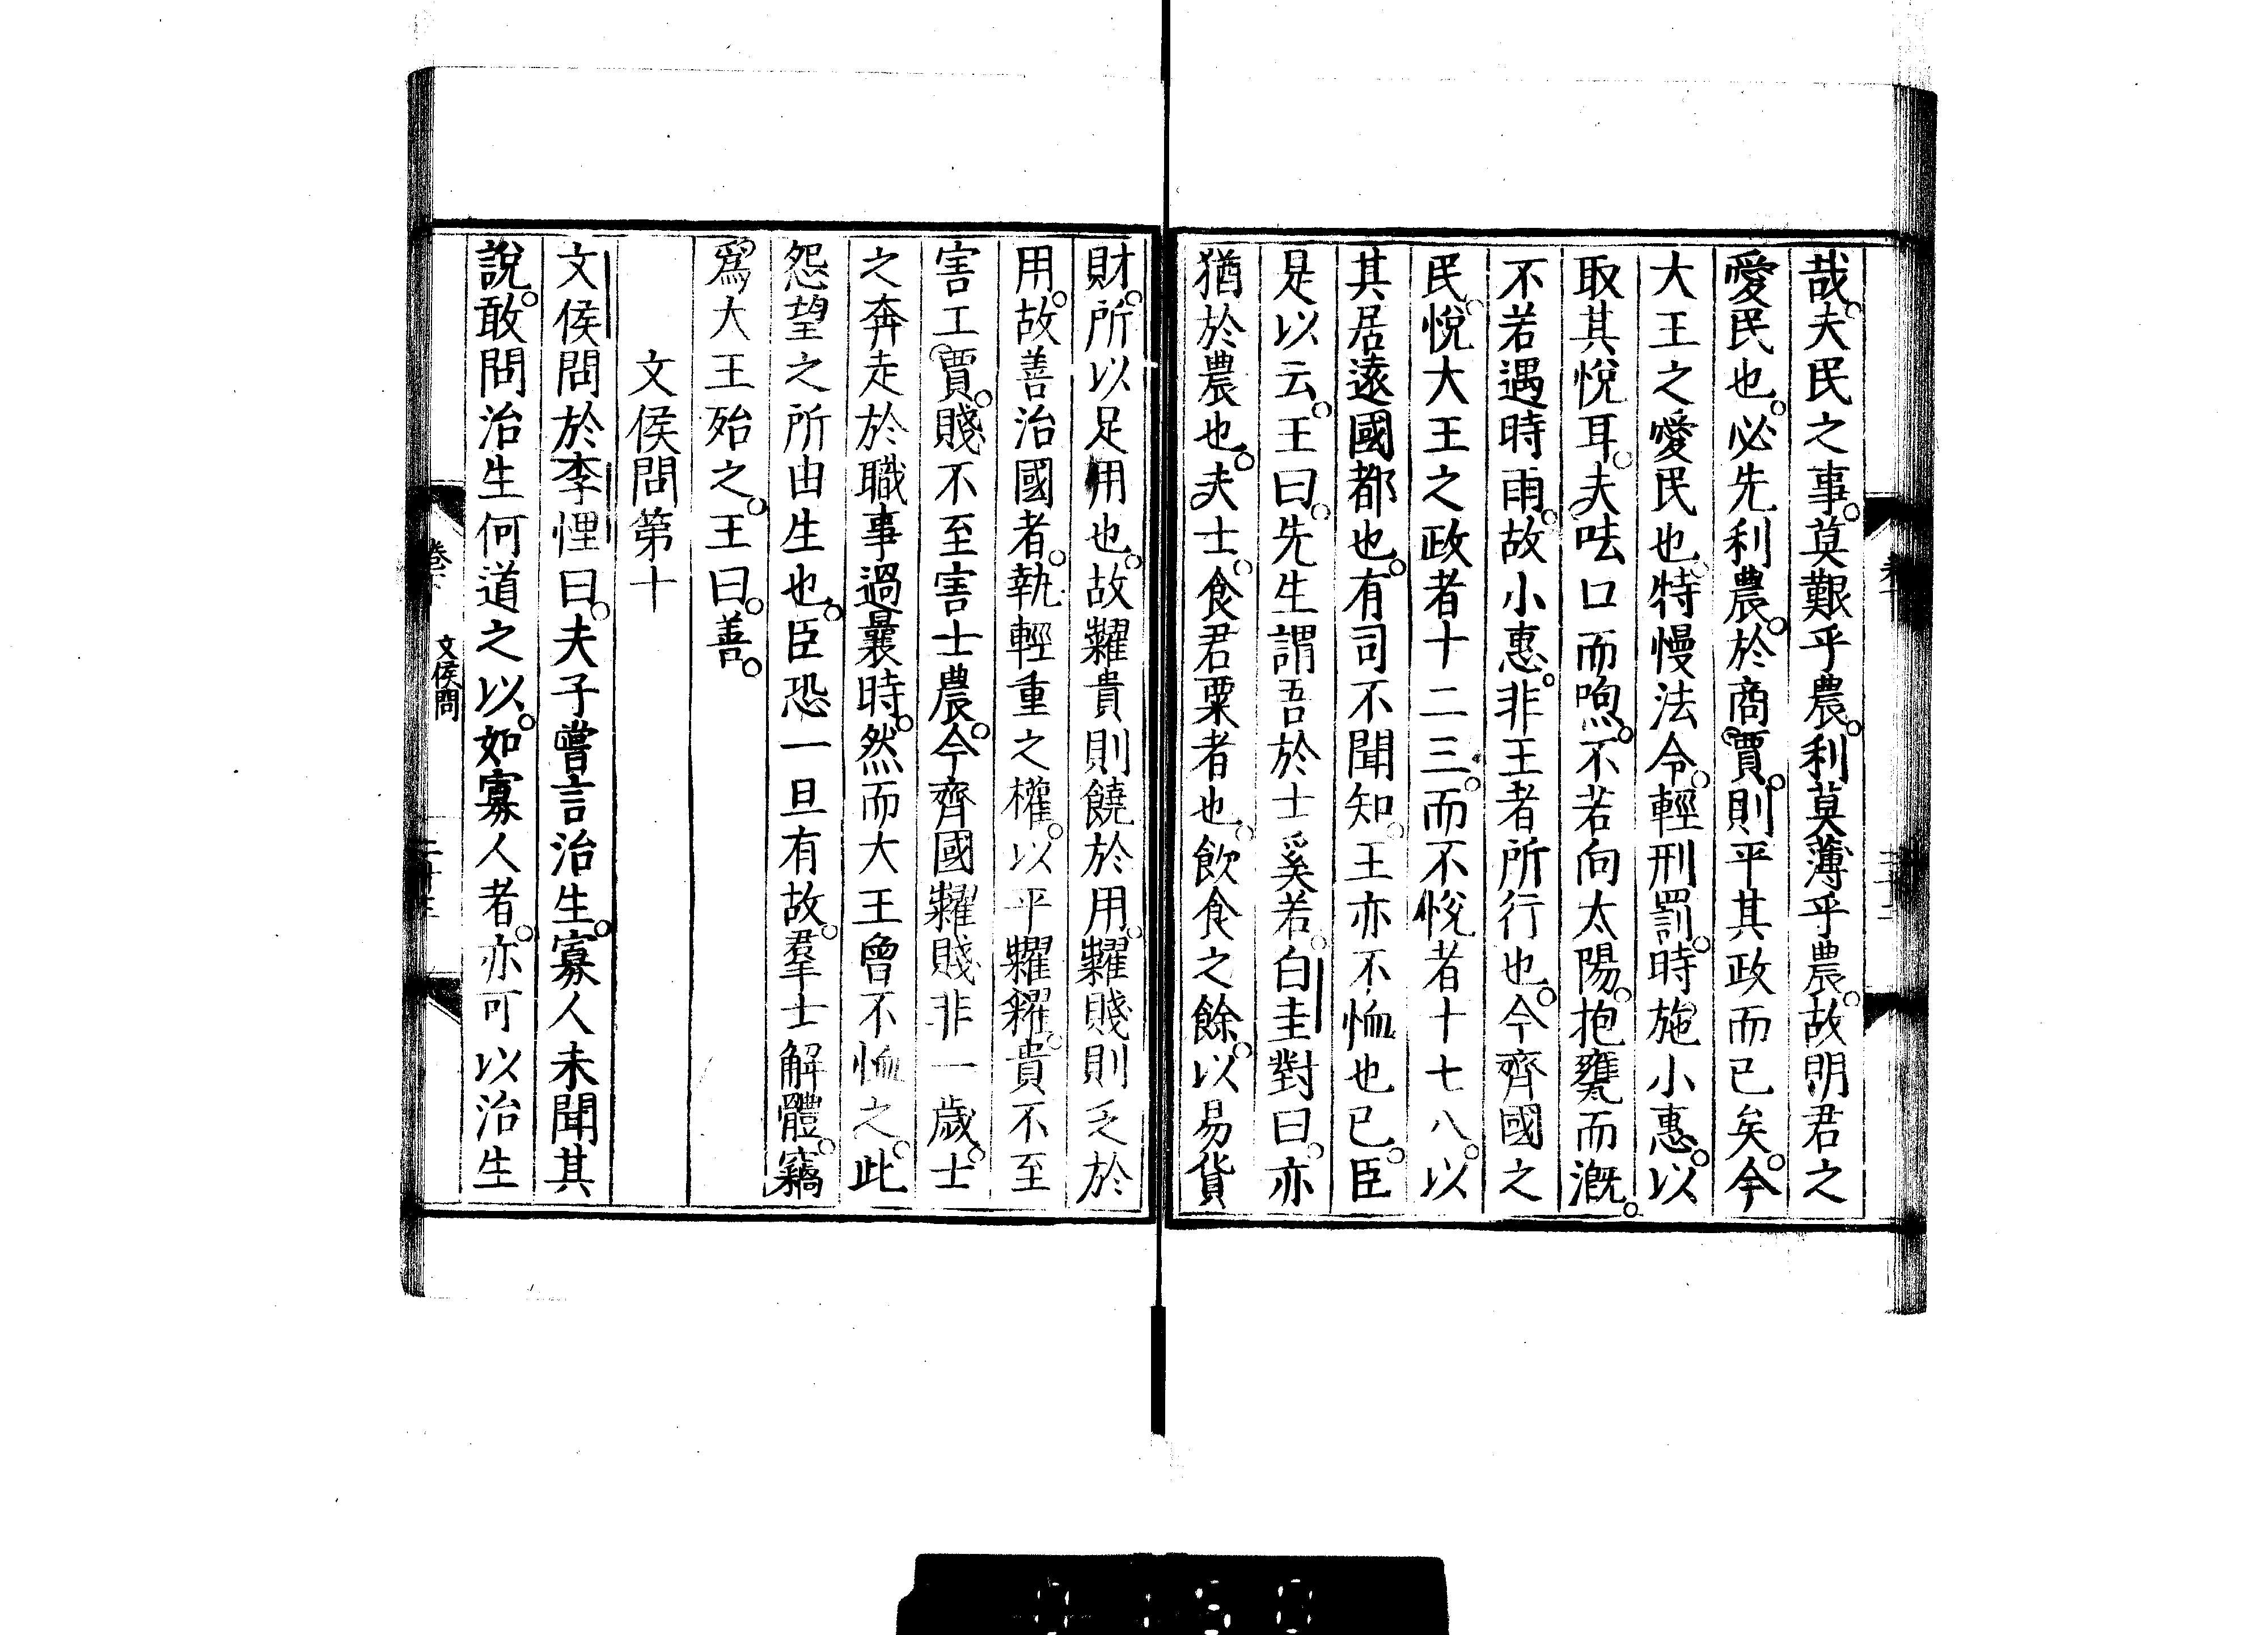 哉。夫民之事。莫艱乎農。利莫薄乎農。故明君之
愛民也。必先利農。於商賈。則平其政而已矣。今
大王之愛民也。特慢法令。輕刑罰。時施小惠。以
取其悅耳。夫呿口而喣。不若向太陽。抱甕而溉。
不若遇時雨。故小惠。非王者所行也。今齊國之
民。悅大王之政者十二三。而不悅者十七八。以
其居遠國都也。有司不聞知。王亦不恤也已。臣
是以云。王曰。先生謂吾於士奚若。白圭對曰。亦
猶於農也。夫士。食君粟者也。飲食之餘。以易貨
財。所以足用也。故糶貴則饒於用。糶賤則乏於
用。故善治國者。執輕重之權。以平糶糴。貴不至
害工賈。賤不至害士農。今齊國糶賤非一歲。士
之奔走於職事過曩時。然而大王曾不恤之。此
怨望之所由生也。臣恐一旦有故。羣士解體。竊
爲大王殆之。王曰。善。
文侯問第十
文侯問於李悝曰。夫子嘗言治生。寡人未聞其
說。敢問治生何道之以。如寡人者。亦可以治生
卷下
文侯問